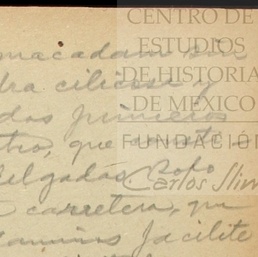 CENTRO DE
ESTUDIOS
DE HISTORIA
DE MÉXICO
FUNDACIÓN
Carlos Slim
macadam sin
dra cilicosa y
dos primeros
tro, que
Delgadas, solo
carretera, que
caminos facilite